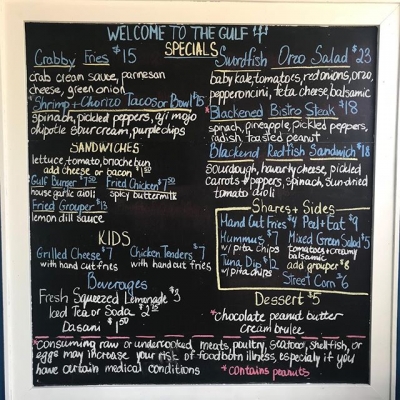 WELCOME TO THE GULF
SPECIALS
Crabby Fries $15
crab cream sauce, parmesan
cheese, green onion
*Shrimp + Chorizo Tacos or Bowl $15
spinach, pickled peppers, aji mojo
chipotle sour cream, purple chips
SANDWICHES
lettuce, tomato, brioche bun
add cheese or bacon $1
Gulf Burger $7.50
house garlic aioli
Fried Chicken $7.50
spicy buttermilk
Fried Grouper $13
lemon dill sauce
KIDS
Grilled Cheese $7
with hand cut fries
Chicken Tenders $7
with hand cut fries
Beverages
Fresh Squeezed Lemonade $3
Iced Tea or Soda $2.25
Dasani $1.50
Swordfish Orzo Salad $23
baby kale, tomatoes, red onions, orzo,
pepperoncini, feta cheese, balsamic
*Blackened Bistro Steak $18
spinach, pineapple, pickled peppers,
radish, toasted peanut
Blackend Redfish Sandwich $18
sourdough, havarty cheese, pickled
carrots + peppers, spinach, sun-dried
tomato aioli
Shares + Sides
Hand Cut Fries $4 Peel + Eat $9
Hummus $7
w/ pita chips
Tuna Dip $12
w/ pita chips
Mixed Green Salad $5
tomatoes + creamy
balsamic
add grouper $8
Street Corn $6
Dessert $5
*chocolate peanut butter
creme brulee
*consuming raw or undercooked meats, poultry, seafood, shellfish, or
eggs may increase your risk of foodborn illness, especially if you
have certain medical conditions
*contains peanuts